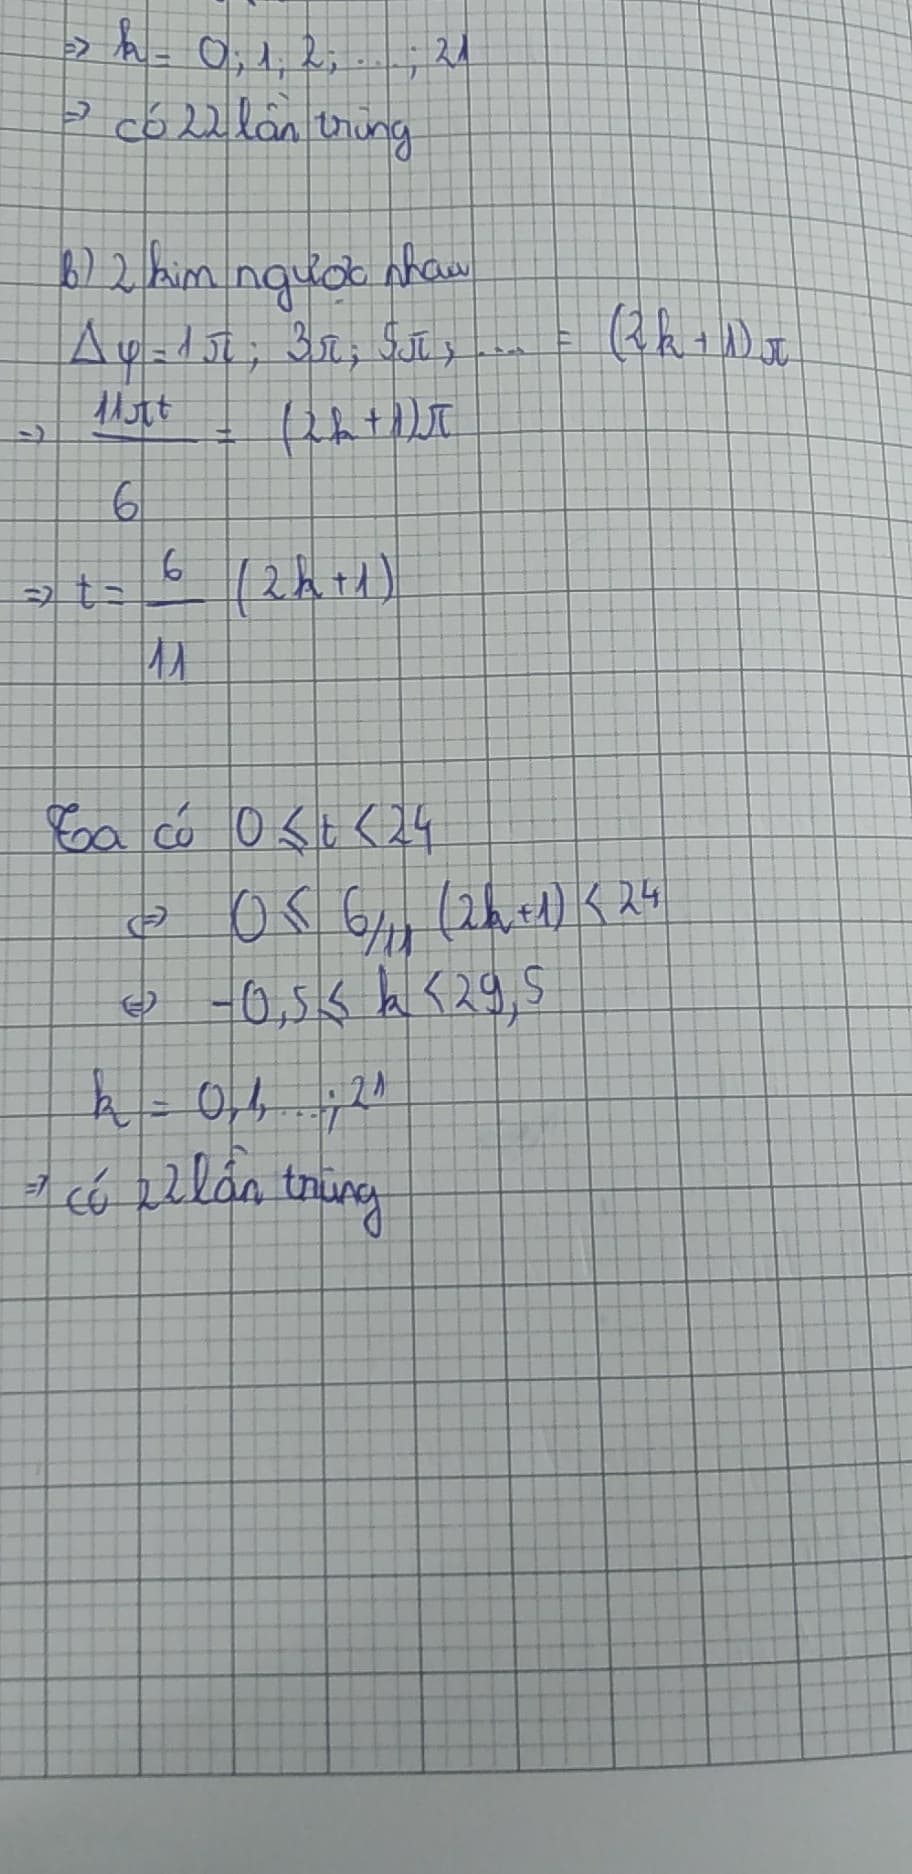 => k = 0; 1; 2; ...; 21
=> có 22 lần trùng
b) 2 kim ngược nhau
Δφ = 1π; 3π; 5π; ... = (2k + 1)π
=> 11πt/6 = (2k + 1)π
=> t = 6/11 (2k + 1)
Ta có 0 ≤ t < 24
<=> 0 ≤ 6/11 (2k+1) < 24
<=> -0,5 ≤ k < 29,5
k = 0, 1, ...; 21
=> có 22 lần trùng